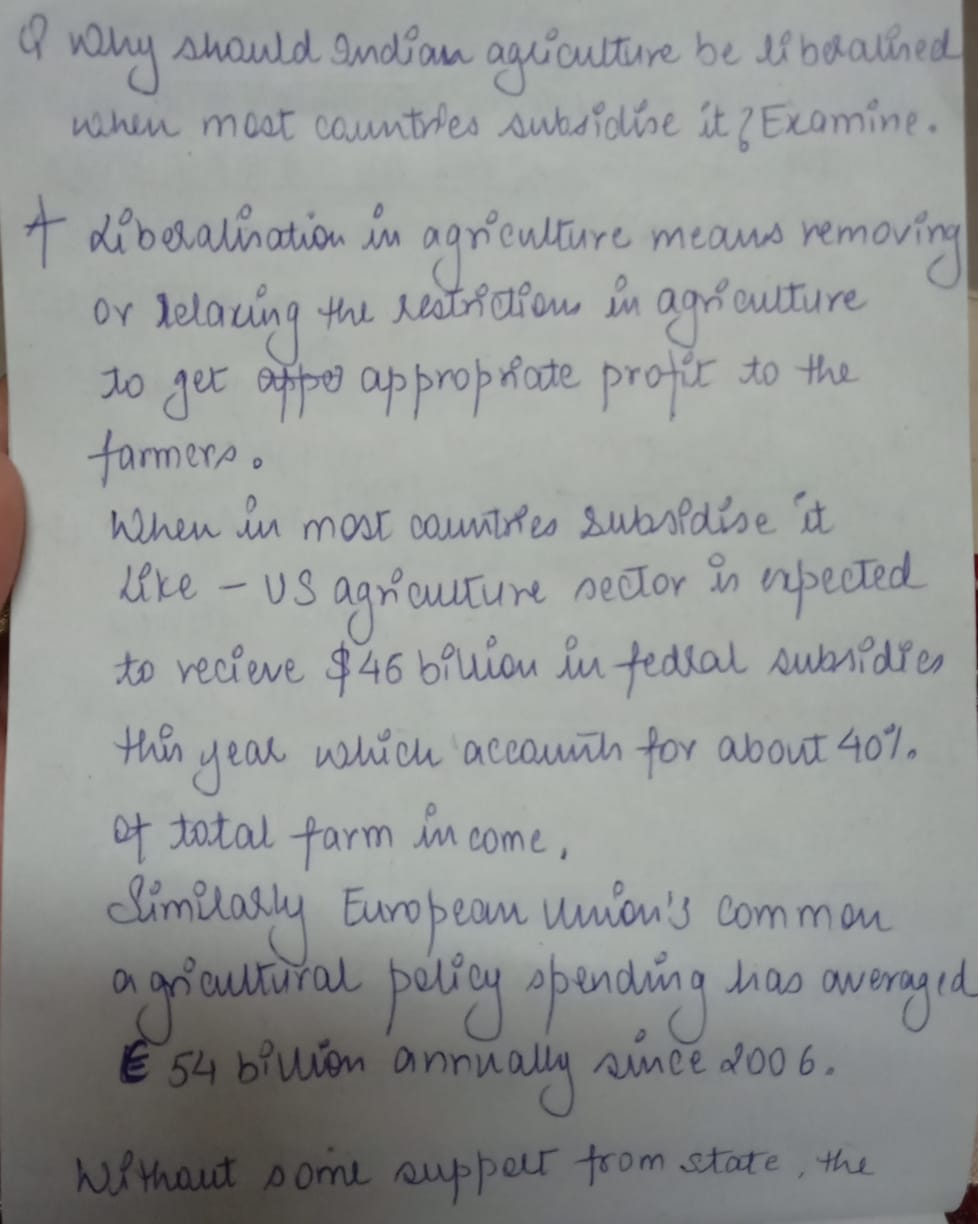 Q Why should Indian agriculture be liberalised
when most countries subsidise it? Examine.
A Liberalisation in agriculture means removing
or relaxing the restrictions in agriculture
to get appro appropriate profit to the
farmers.
When in most countries subsidise it
like - US agriculture sector is expected
to recieve $46 billion in fedral subsidies
this year which accounts for about 40%
of total farm income.
Similarly European Union's common
agricultural policy spending has averaged
€ 54 billion annually since 2006.
Without some support from state, the